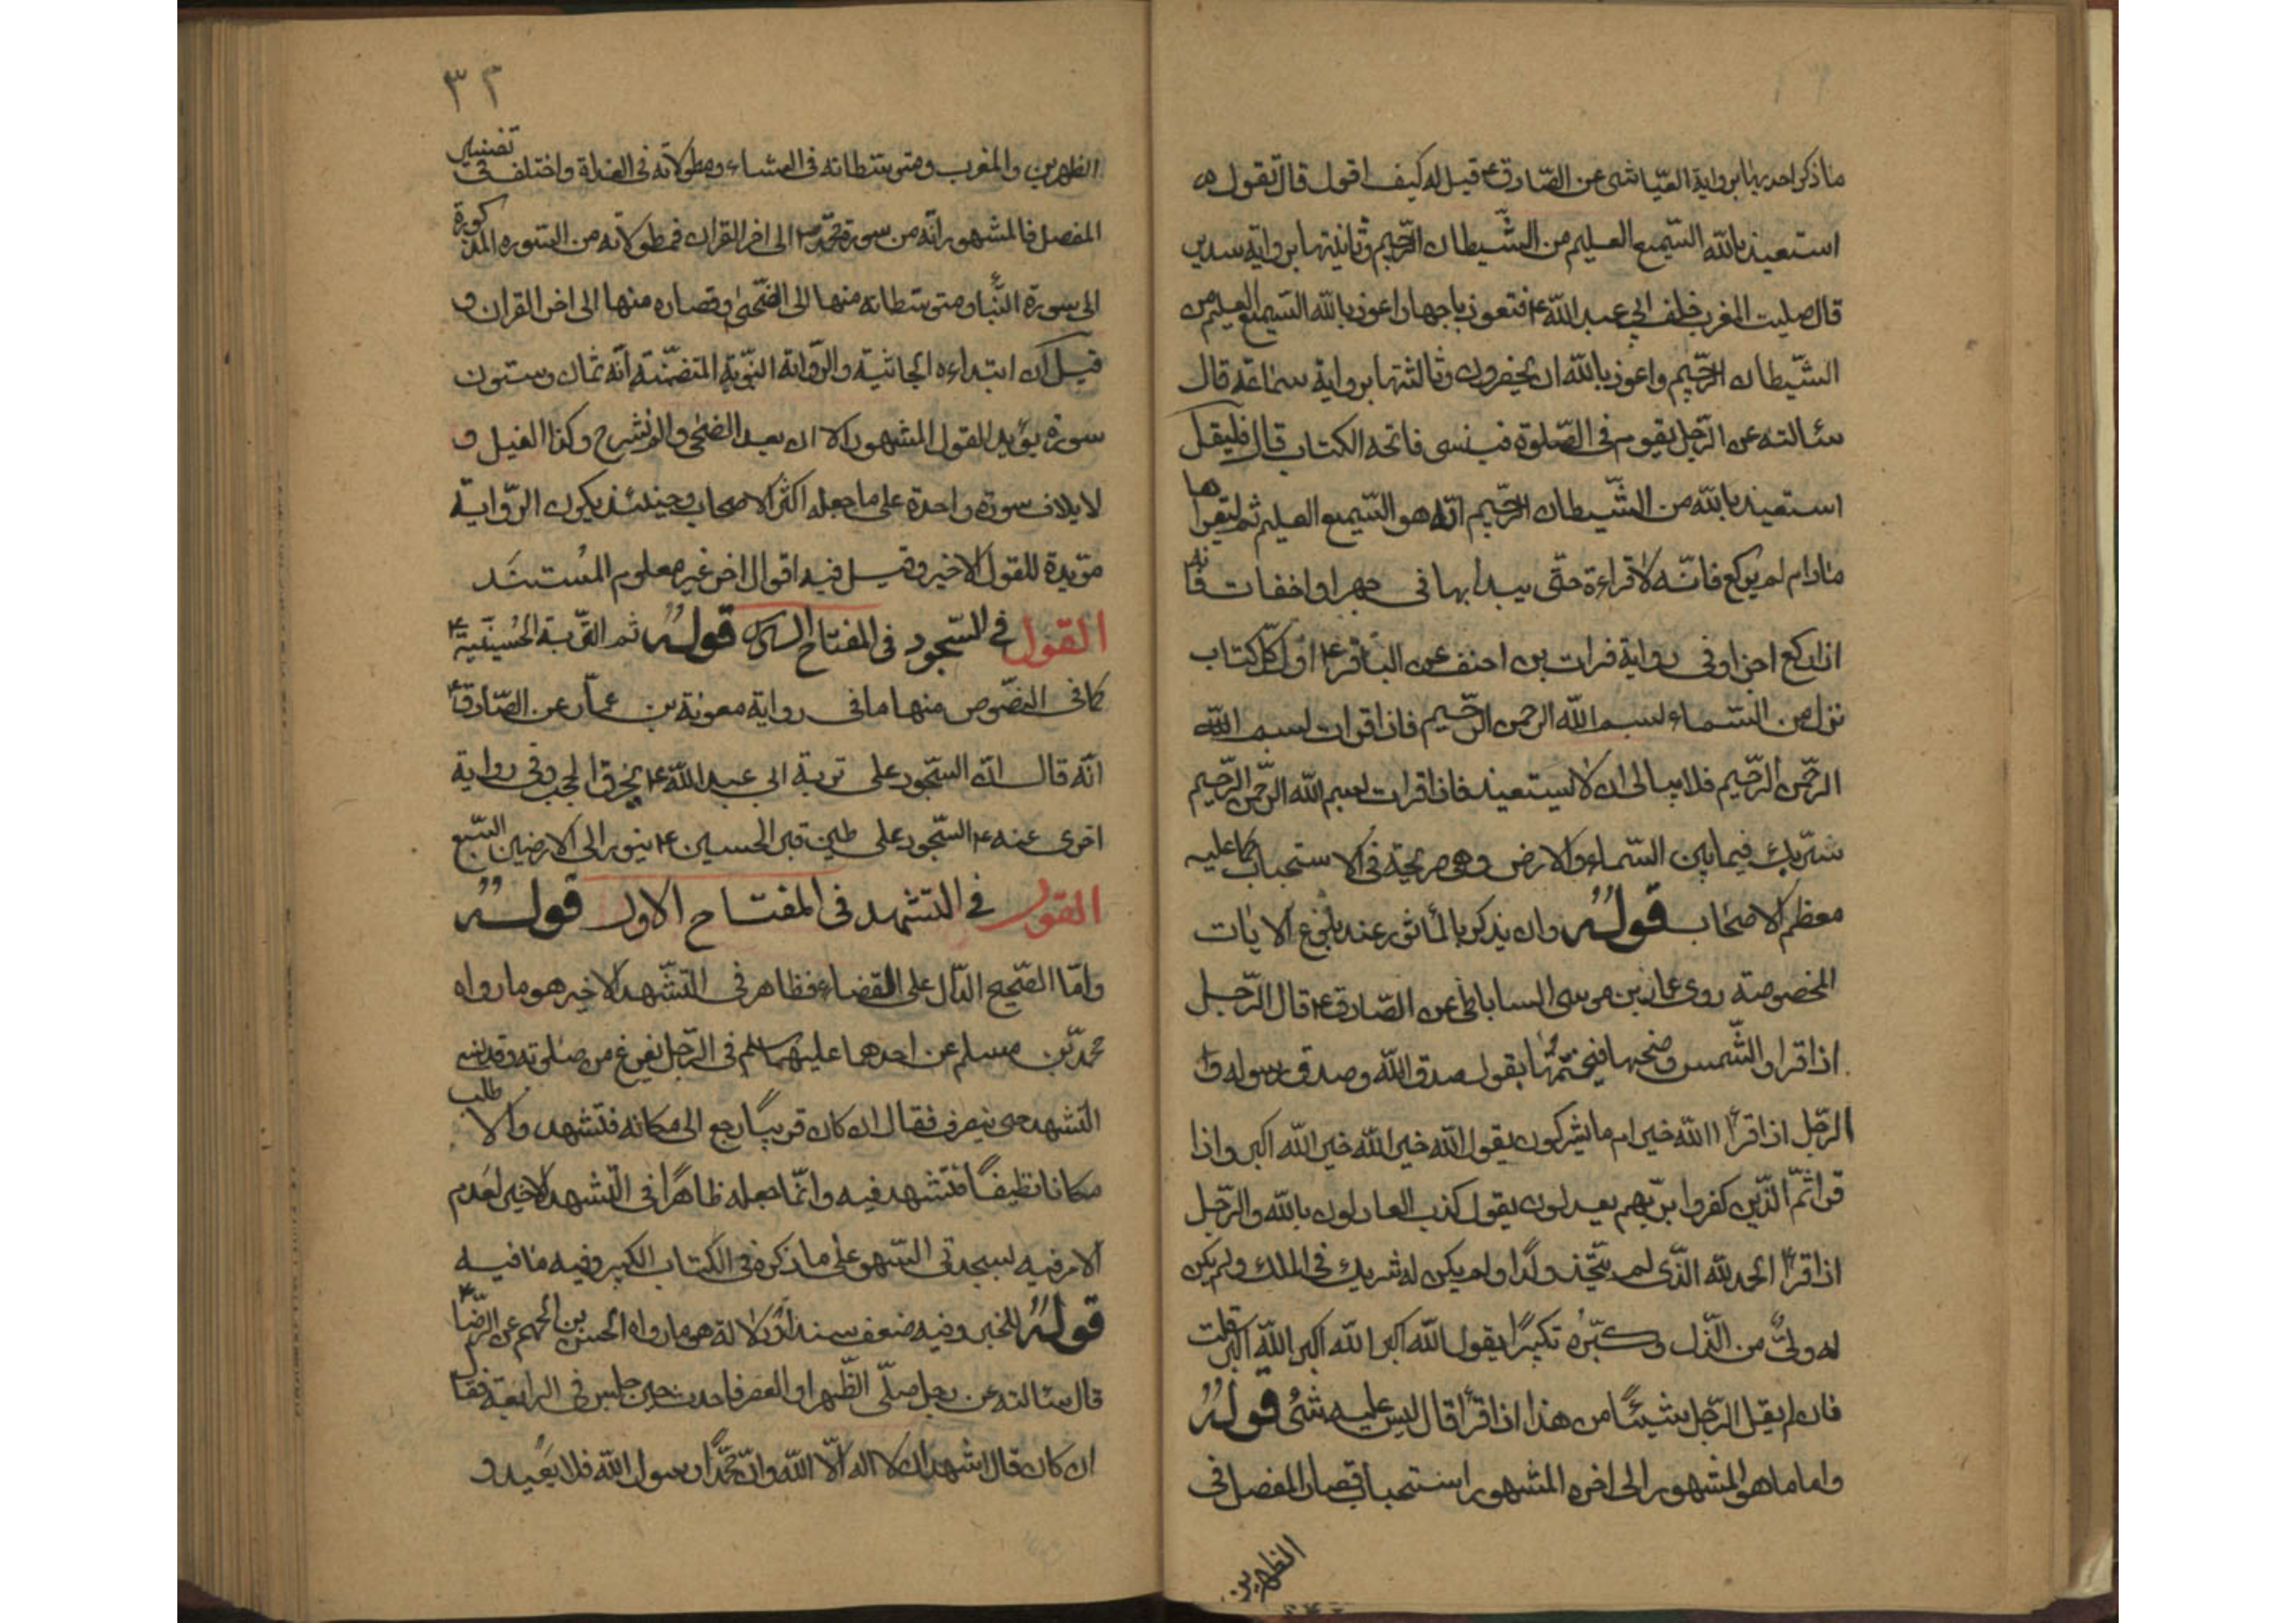 ما ذكر احديها برواية العيّاشى عن الصّادق ع قيل له كيف اقول قال تقول
استعيذ بالله السّميع العليم من الشّيطان الرّجيم وثانيتها برواية سدير
قال صليت المغرب خلف ابي عبد الله ع فتعوذ باجهار اعوذ بالله السّميع العليم من
الشّيطان الرّجيم واعوذ بالله ان يحضرون وثالثتها برواية سماعة قال
سئالته عن الرّجل يقوم فى الصّلوة فينسى فاتحه الكتاب قال فليقل
استعيذ بالله من الشّيطان الرّجيم انّه هو السّميع العليم ثم ليقرأها
مادام لم يركع فانّه لا قراءة حتّى يبدأ بها فى جهر او اخفات فانه
اذا ركع اجزاه وفى رواية فرات بن احنف عن الباقر ع اوّل كلّ كتاب
نزل من السّماء بسم الله الرحمن الرّحيم فاذا قرات بسم الله
الرحمن الرّحيم فلا يبالى ان لا تستعيذ فاذا قرات بسم الله الرّحمن الرّحيم
سترتك فيما بين السّماء والارض وهى صريحة فى الاستحباب كما عليه
معظم الاصحاب قوله وان يذكر بالمأثور عند بلوغ الايات
المخصوصة روى عمار بن موسى الساباطى عن الصّادق ع قال الرّجل
اذا قرا والشّمس وضحيها فيختمها يقول صدق الله وصدق رسوله و
الرّجل اذا قرأ ءالله خير ام ما يشركون يقول الله خير الله خير الله اكبر واذا
قرا ثمّ الّذين كفروا بربّهم يعدلون يقول كذب العادلون بالله والرّجل
اذا قرأ الحمد لله الّذى لم يتّخذ ولدًا ولم يكن له شريك فى الملك ولم يكن
له ولىٌّ من الذّل وكبّره تكبيرًا يقول الله اكبر الله اكبر الله اكبر قلت
فان لم يقل الرّجل شيئًا من هذا اذا قرأ قال ليس عليه شئ قوله
واما ما هو المشهور الى اخره المشهور استحباب قصار المفصل فى
الظهرين
٣٢
الظهرين والمغرب ومتوسّطاته فى العشاء ومطولاته فى الغداة واختلف فى تفسير
المفصل فالمشهور انّه من سورة محمّد ص الى اخر القران فمطولاته من السّوره المذكورة
الى سورة النّبأ ومتوسّطاته منها الى الضّحى وقصاره منها الى اخر القران و
قيل ان ابتداءه الجاثية والرّواية النبويّة المتضمّنة انّه ثمان وستون
سورة يؤيد القول المشهور الا ان بعد الضحى والم نشرح وكذا الفيل و
لايلاف سورة واحدة على ما جعله اكثر الاصحاب وحينئذ يكون الرّواية
مؤيدة للقول الاخير وقيل فيه اقوال اخر غير معلوم المستند
القول فى السّجود فى المفتاح قوله ثم التّربة الحسينيّة ع
كما فى النصّوص منها ما فى رواية معوية بن عمّار عن الصّادق ع
انّه قال انّ السّجود على تربة ابى عبد الله ع يخرق الحجب وفى رواية
اخرى عنه ع السّجود على طين قبر الحسين ع ينور الى الارضين السّبع
القول فى التشهد فى المفتاح الاول قوله
وامّا الصّحيح الدّال على القضاء فظاهر فى التشّهد الاخير هو ما رواه
محمّد بن مسلم عن احدهما عليهما سلم فى الرّجل يفرغ من صلوته وقد نسى
التشهد حتى ينصرف فقال ان كان قريبًا رجع الى مكانه فتشهد والا طلب
مكانا نظيفًا فتشهد فيه وانّما جعله ظاهرًا فى التشهد الاخير لعدم
الامر فيه لسجدتى السّهو على ما ذكره فى الكتاب الكبير وفيه ما فيه
قوله للخبر وفيه ضعف سندا ودلالة هو ما رواه الحسن بن الجهم عن الرّضا ع
قال سئالته عن رجل صلّى الظّهر او العصر فاحدث حين جلس فى الرابعة فقال
ان كان قال اشهد ان لا اله الّا الله وانّ محمّدًا رسول الله فلا يعيد و